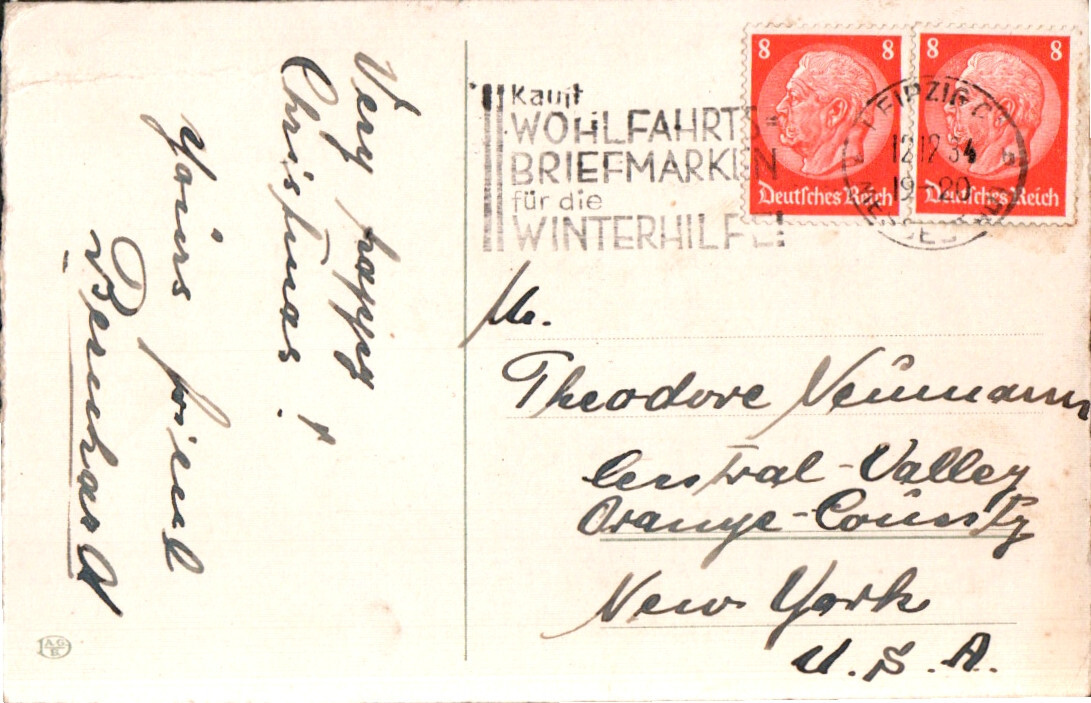 Very happy
Christmas!
Yours friend
Bernhard
Kauft
WOHLFAHRTS-
BRIEFMARKEN
für die
WINTERHILFE!
8 8
Deutsches Reich
8 8
Deutsches Reich
LEIPZIG C
12 12 34
19-20
Mr.
Theodore Neumann
Central-Valley
Orange-County
New York
U.S.A.